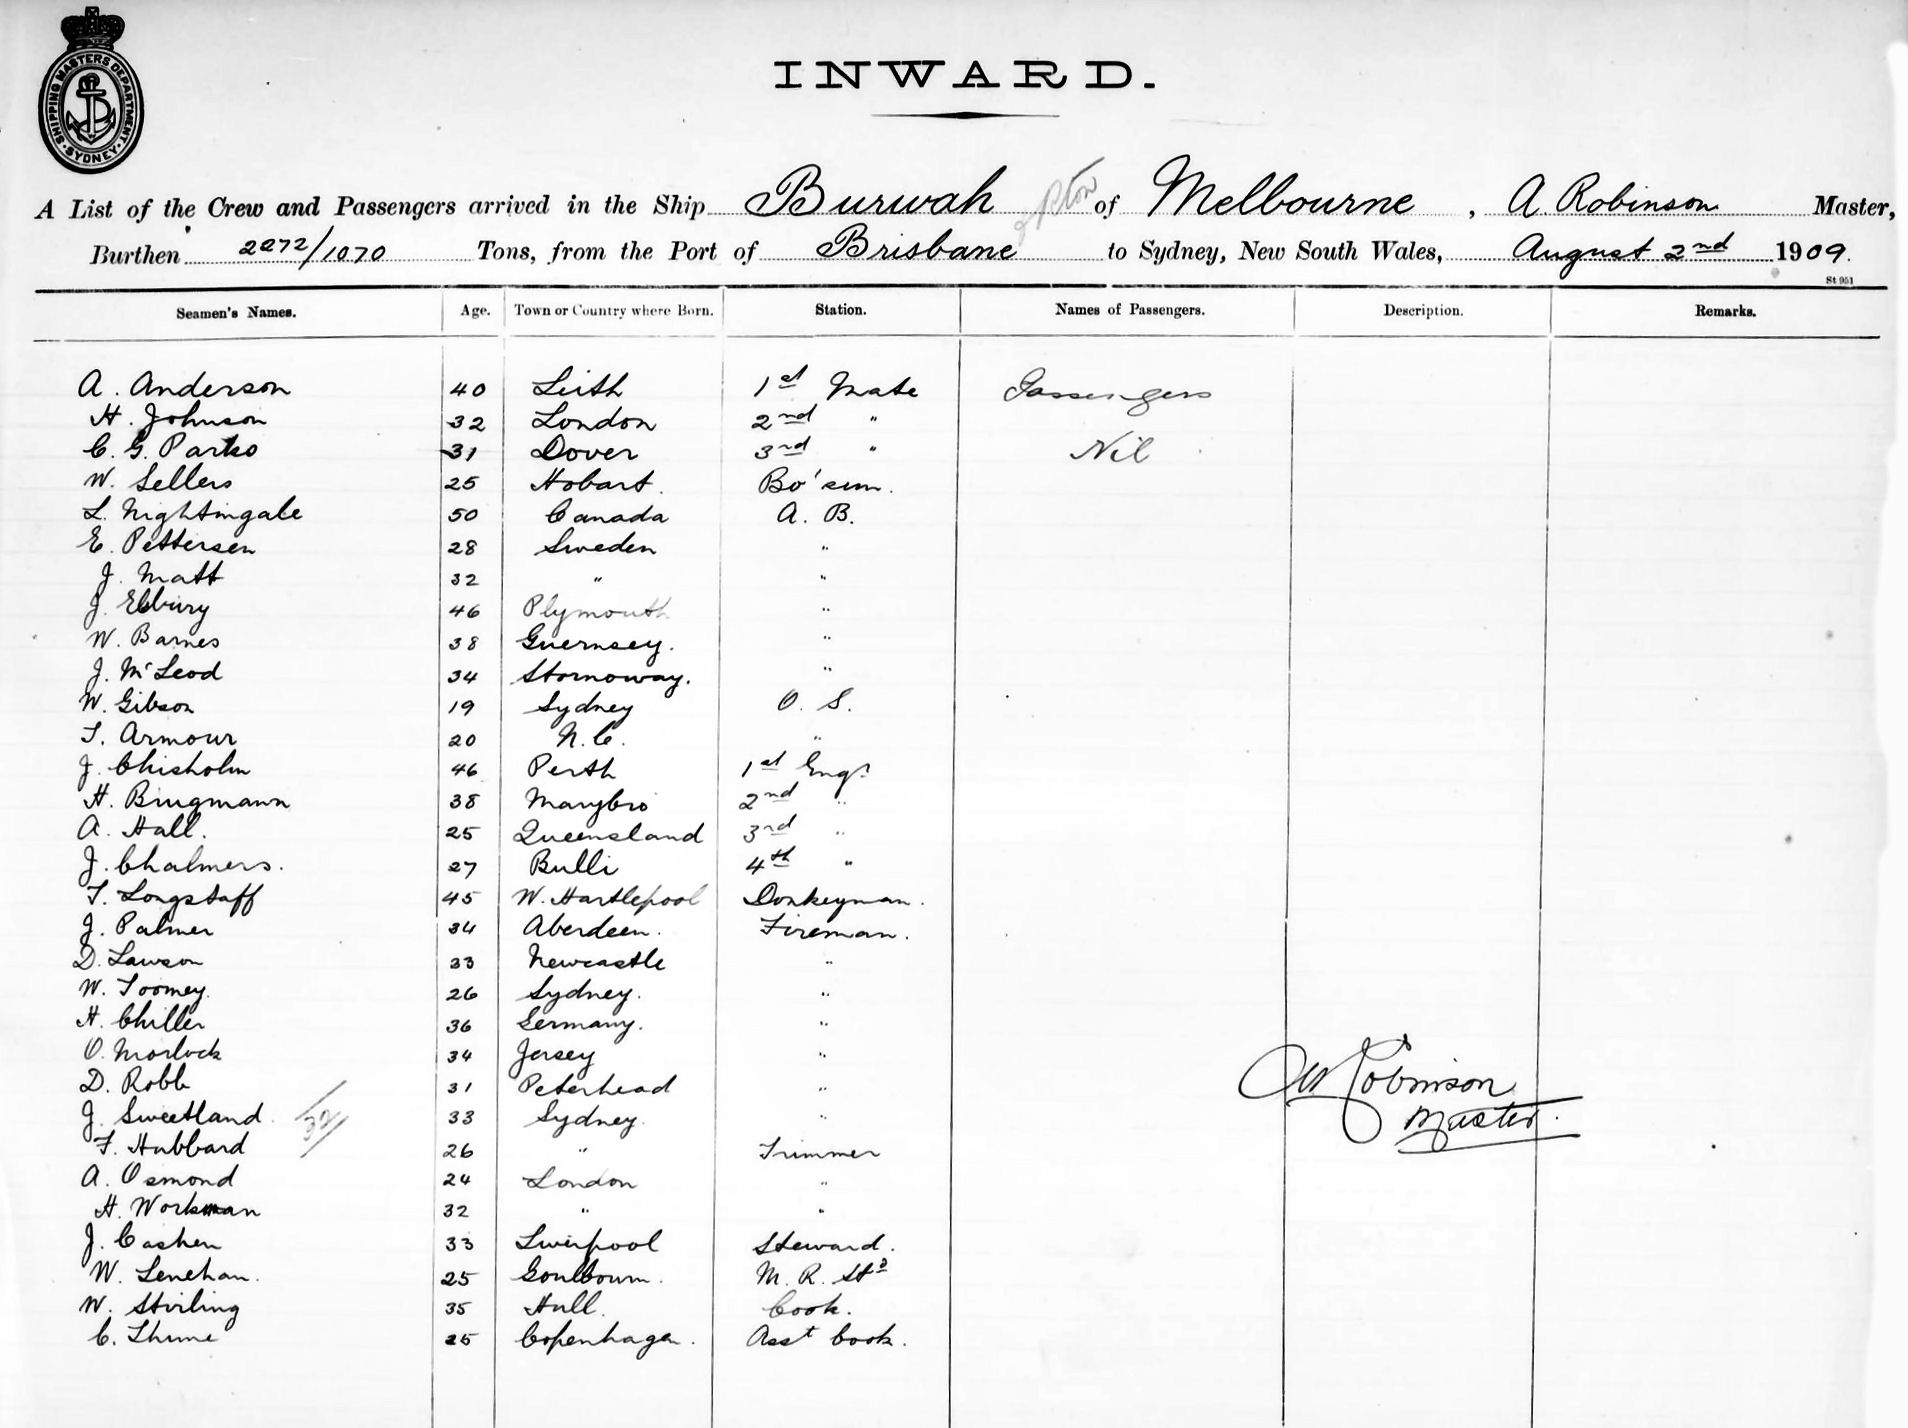 SHIPPING MASTERS DEPARTMENT. SYDNEY.
INWARD.
A List of the Crew and Passengers arrived in the Ship Burwah of Melbourne, A. Robinson Master,
Burthen 2272/1070 Tons, from the Port of Brisbane to Sydney, New South Wales, August 2nd 1909.
St 951
Seamen's Names. Age. Town or Country where Born. Station. Names of Passengers. Description. Remarks.
A. Anderson 40 Leith 1st Mate Passengers
H. Johnson 32 London 2nd "
C. G. Parks 31 Dover 3rd " Nil
W. Sellers 25 Hobart. Bo'sun.
L. Nightingale 50 Canada A. B.
E. Pettersen 28 Sweden "
J. Matt 32 " "
J. Ebbury 46 Plymouth "
W. Barnes 38 Guernsey. "
J. McLeod 34 Stornoway. "
W. Gibson 19 Sydney O. S.
T. Armour 20 N.C. "
J. Chisholm 46 Perth 1st Engr
H. Brugmann 38 Marybro 2nd "
A. Hall. 25 Queensland 3rd "
J. Chalmers. 27 Bulli 4th "
T. Longstaff 45 W. Hartlepool Donkeyman.
J. Palmer 34 Aberdeen. Fireman.
D. Lawson 33 Newcastle "
W. Toomey. 26 Sydney. "
H. Chiller 36 Germany. "
O. Morlock 34 Jersey "
D. Robb 31 Peterhead "
J. Sweetland 33 Sydney "
32
F. Hubbard 26 " Trimmer
A. Osmond 24 London "
H. Workman 32 " "
J. Cashen 33 Liverpool Steward.
W. Lenehan. 25 Goulbourn. M. R. Std
W. Stirling 35 Hull. Cook.
C. Thume 25 Copenhagen. Asst Cook.
AW Robinson
Master.